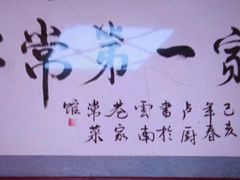 常第一家
己亥
年春
卢厨
書於
雲南
巷家
常菜
馆